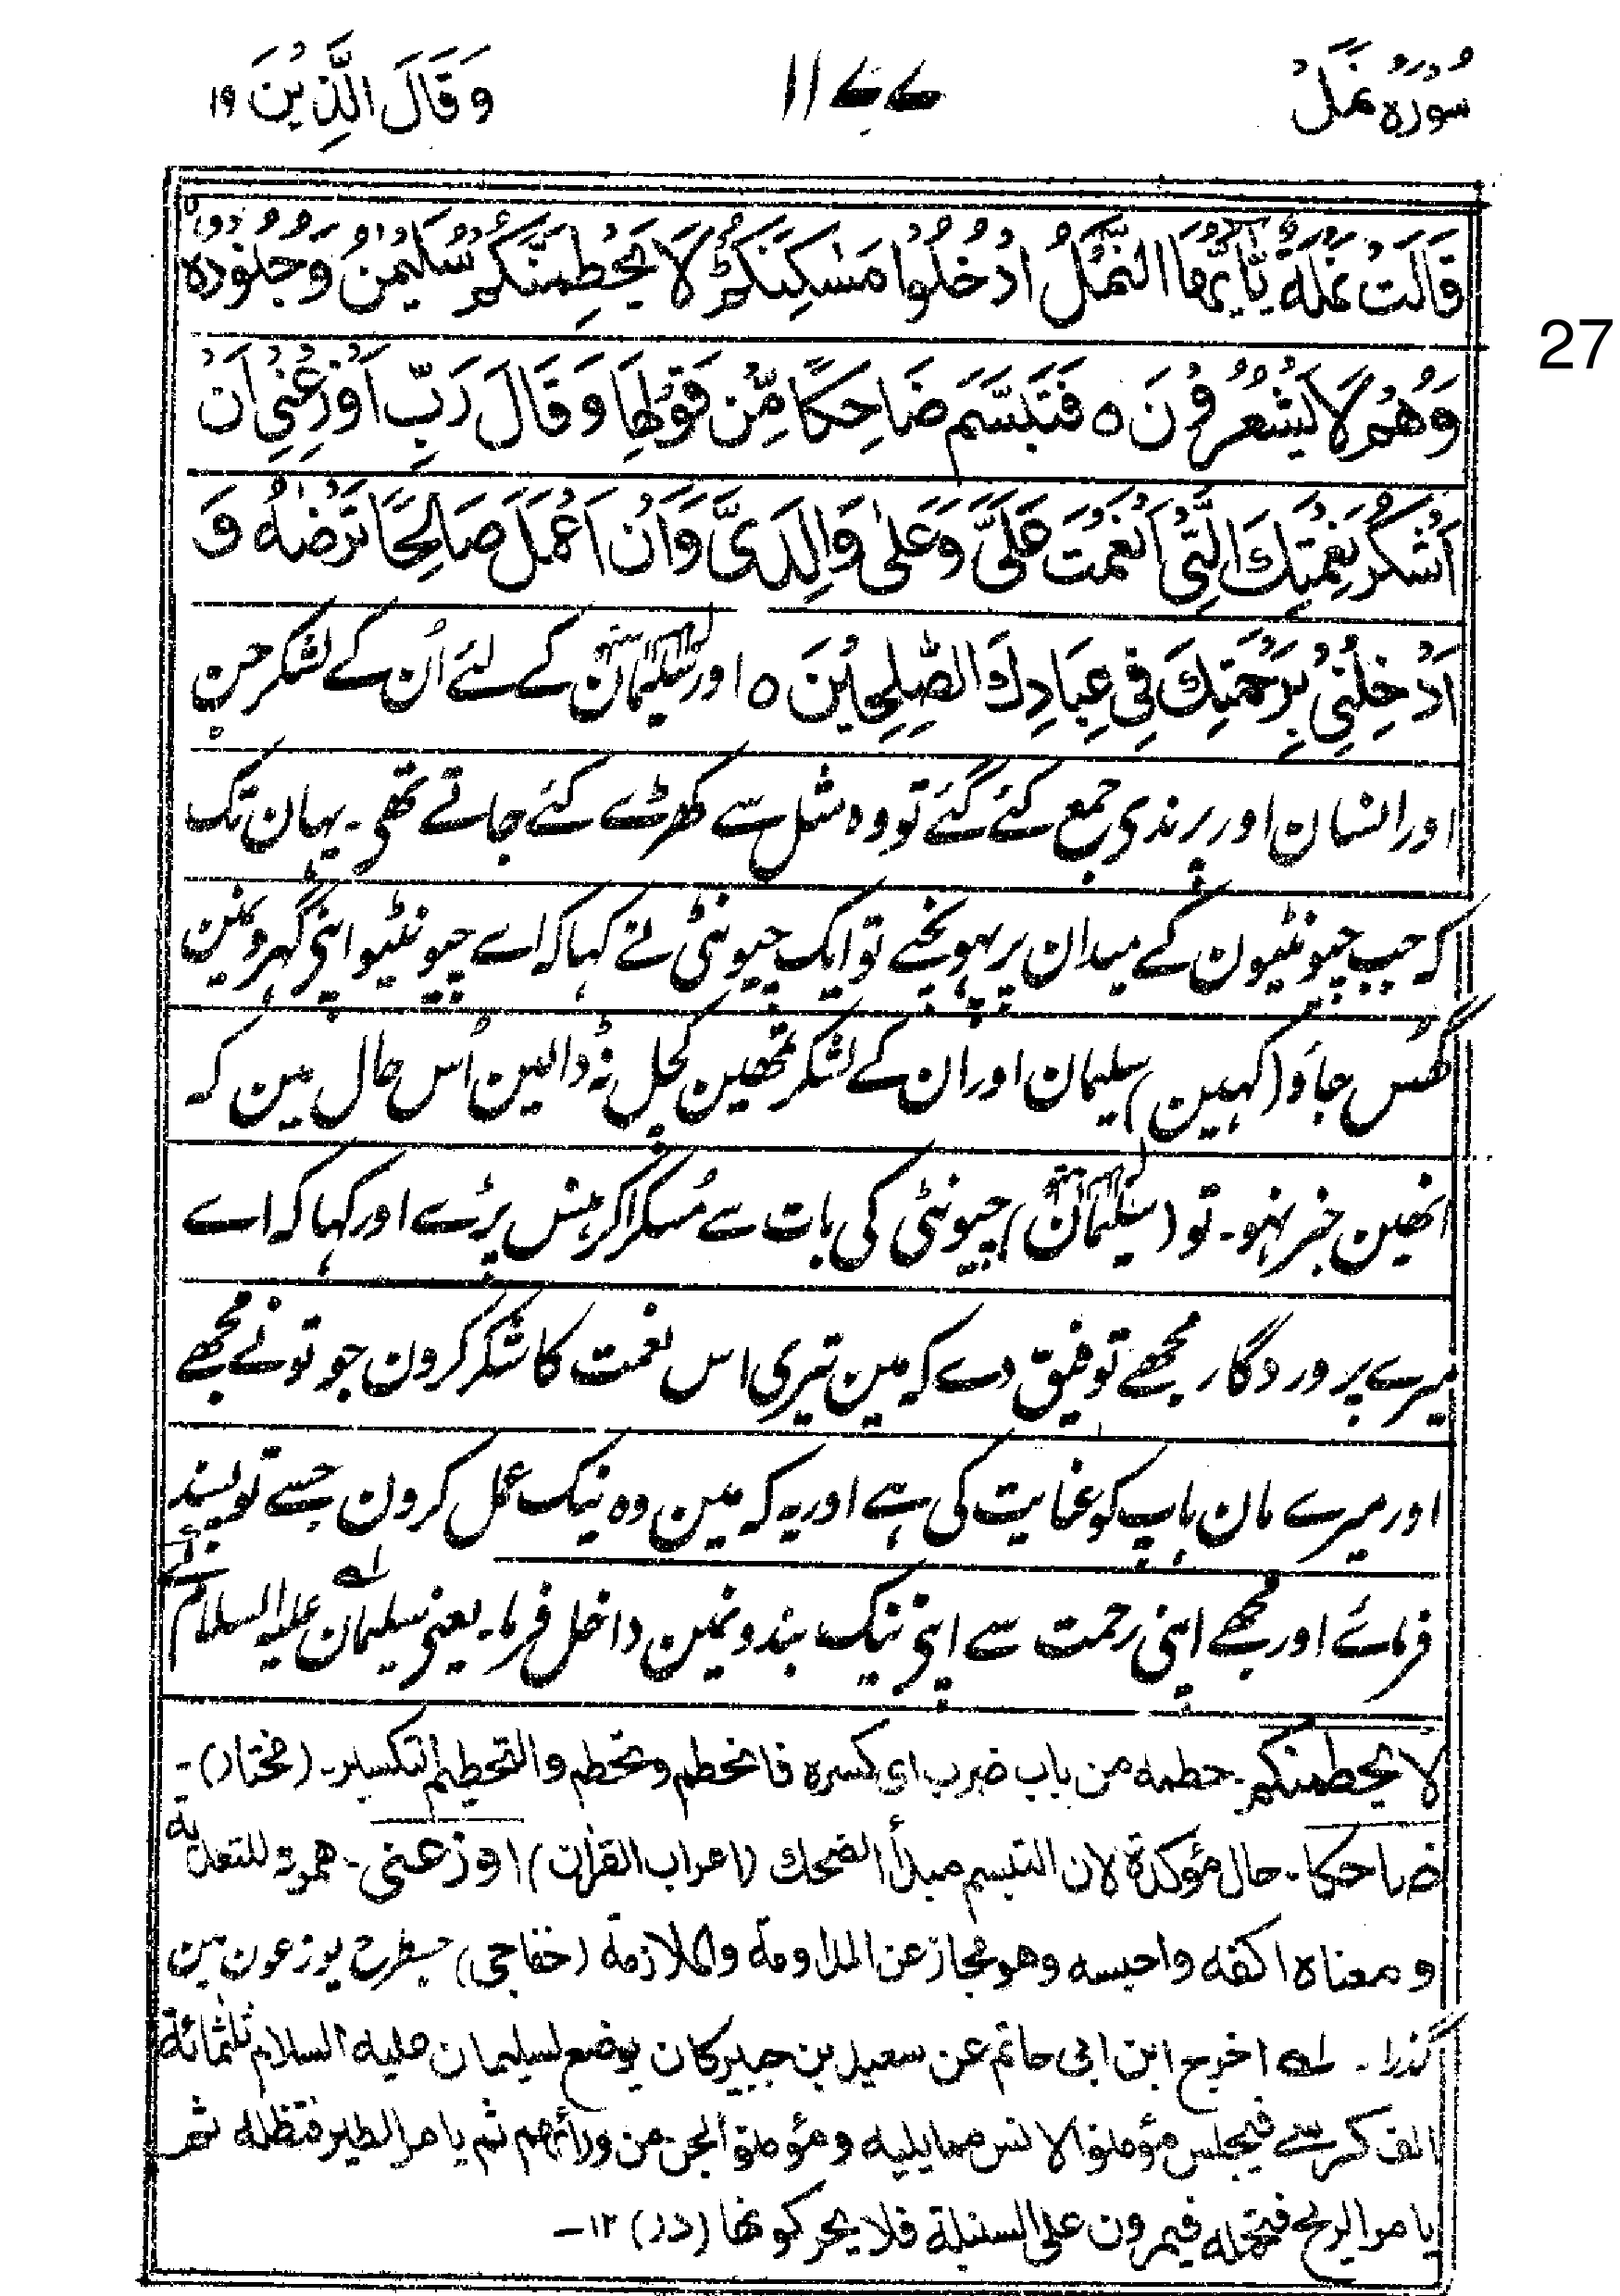 سُوْرَهٔ نَمَلْ
۱۱۷۷
وَقَالَ الَّذِيْنَ ۱۹
27
قَالَتْ نَمْلَةٌ يّٰۤاَيُّهَا النَّمْلُ ادْخُلُوْا مَسٰكِنَكُمْ لَا يَحْطِمَنَّكُمْ سُلَيْمٰنُ وَجُنُوْدُهٗ
وَهُمْ لَا يَشْعُرُوْنَ ○ فَتَبَسَّمَ ضَاحِكًا مِّنْ قَوْلِهَا وَقَالَ رَبِّ اَوْزِعْنِيْ اَنْ
اَشْكُرَ نِعْمَتَكَ الَّتِيْ اَنْعَمْتَ عَلَيَّ وَعَلٰى وَالِدَيَّ وَاَنْ اَعْمَلَ صَالِحًا تَرْضٰهُ وَ
اَدْخِلْنِيْ بِرَحْمَتِكَ فِيْ عِبَادِكَ الصّٰلِحِيْنَ ○ اور سلیمان کے لئے اُن کے لشکر جن
اور انسان اور پرندی جمع کئے گئے تو وہ مثل سے کھڑے کئے جاتے تھی ۔ یہان تک
کہ جب چیونٹیون کے میدان پر پہونچے تو ایک چیونٹی نے کہا کہ اے چیونٹیو اپنی گہرونمین
گھُس جاؤ (کہین) سلیمان اور ان کے لشکر تمھین کچل نہ ڈالین اُس حال مین کہ
انھین خبر نہو ۔ تو (سلیمان) چیونٹی کی بات سے مُسکرا کر ہنس پڑے اور کہا کہ اے
میرے پروردگار مجھے توفیق دے کہ مین تیری اس نعمت کا شکر کرون جو تو نے مجھے
اور میرے مان باپ کو عنایت کی ہے اور یہ کہ مین وہ نیک عمل کرون جسے تو پسند
فرمائے اور مجھے اپنی رحمت سے اپنی نیک بندونمین داخل فرما ۔ یعنی سلیمان علیہ السلام کے
لا يحطمنكم ۔ حطمه من باب ضرب اى كسره فانحطم وتحطم والتحطيم التكسير ۔ (مختار) ۔
ضاحكا ۔ حال مؤكدة لان التبسم مبدأ الضحك (اعراب القرآن) اوزعنى ۔ همزه للتعدية
ومعناه اكفه واحبسه وهو مجاز عن المداومة والملازمة (خفاجی) جسطرح يوزعون مين
گذرا ۔ لہ اخرج ابن ابى حاتم عن سعيد بن جبير كان يوضع لسليمان عليه السلام ثلثمائة
الف كرسے فيجلس مؤمنوا الانس مما يليه ومؤمنوا الجن من ورائهم ثم يامر الطير فتظله ثم
يامر الريح فتحمله فيمرون على السنبلة فلا يحركونها (در) ۱۲ –